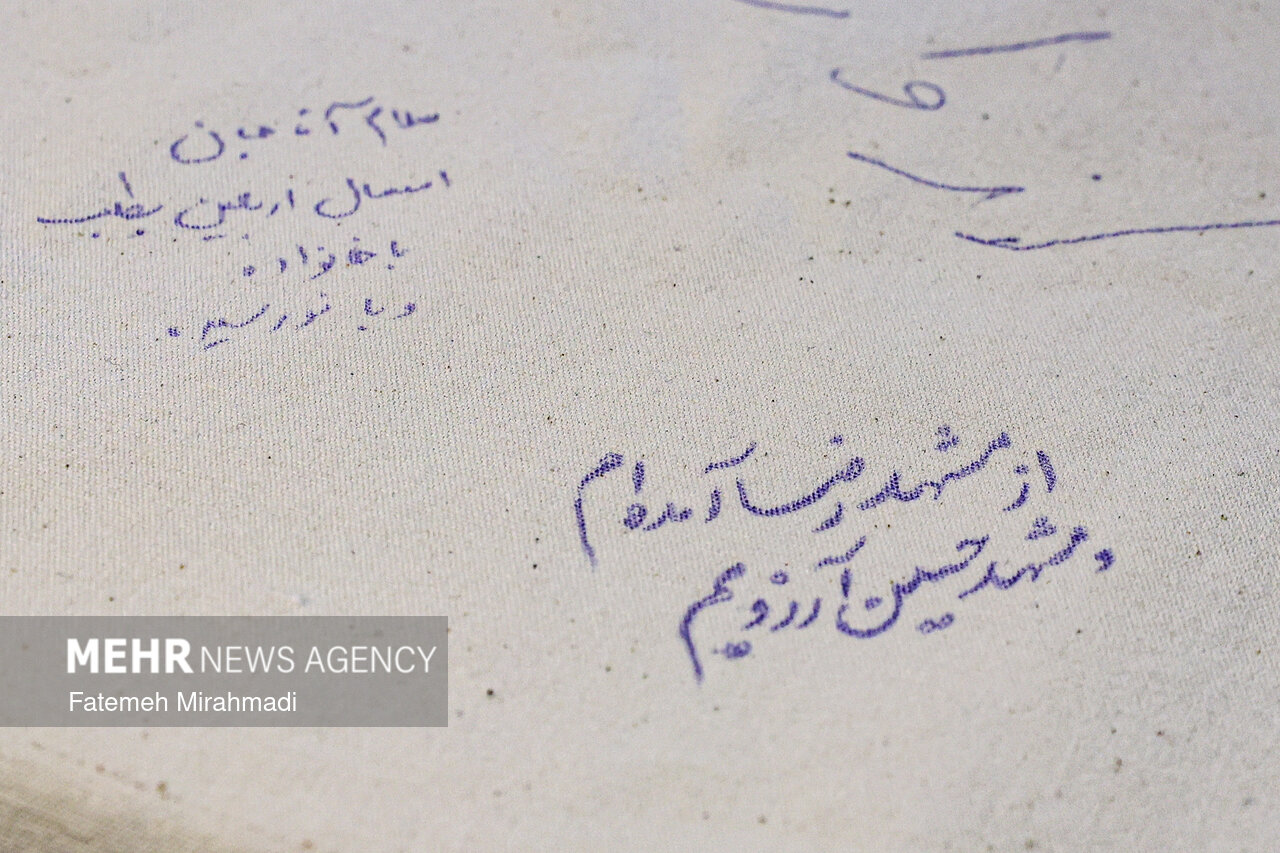 سلام آقا جان
امسال اربعین بطلب
با خانواده
و با
از مشهد رضا آمده‌ام
و مشهد حسین آرزویم
MEHR NEWS AGENCY
Fatemeh Mirahmadi